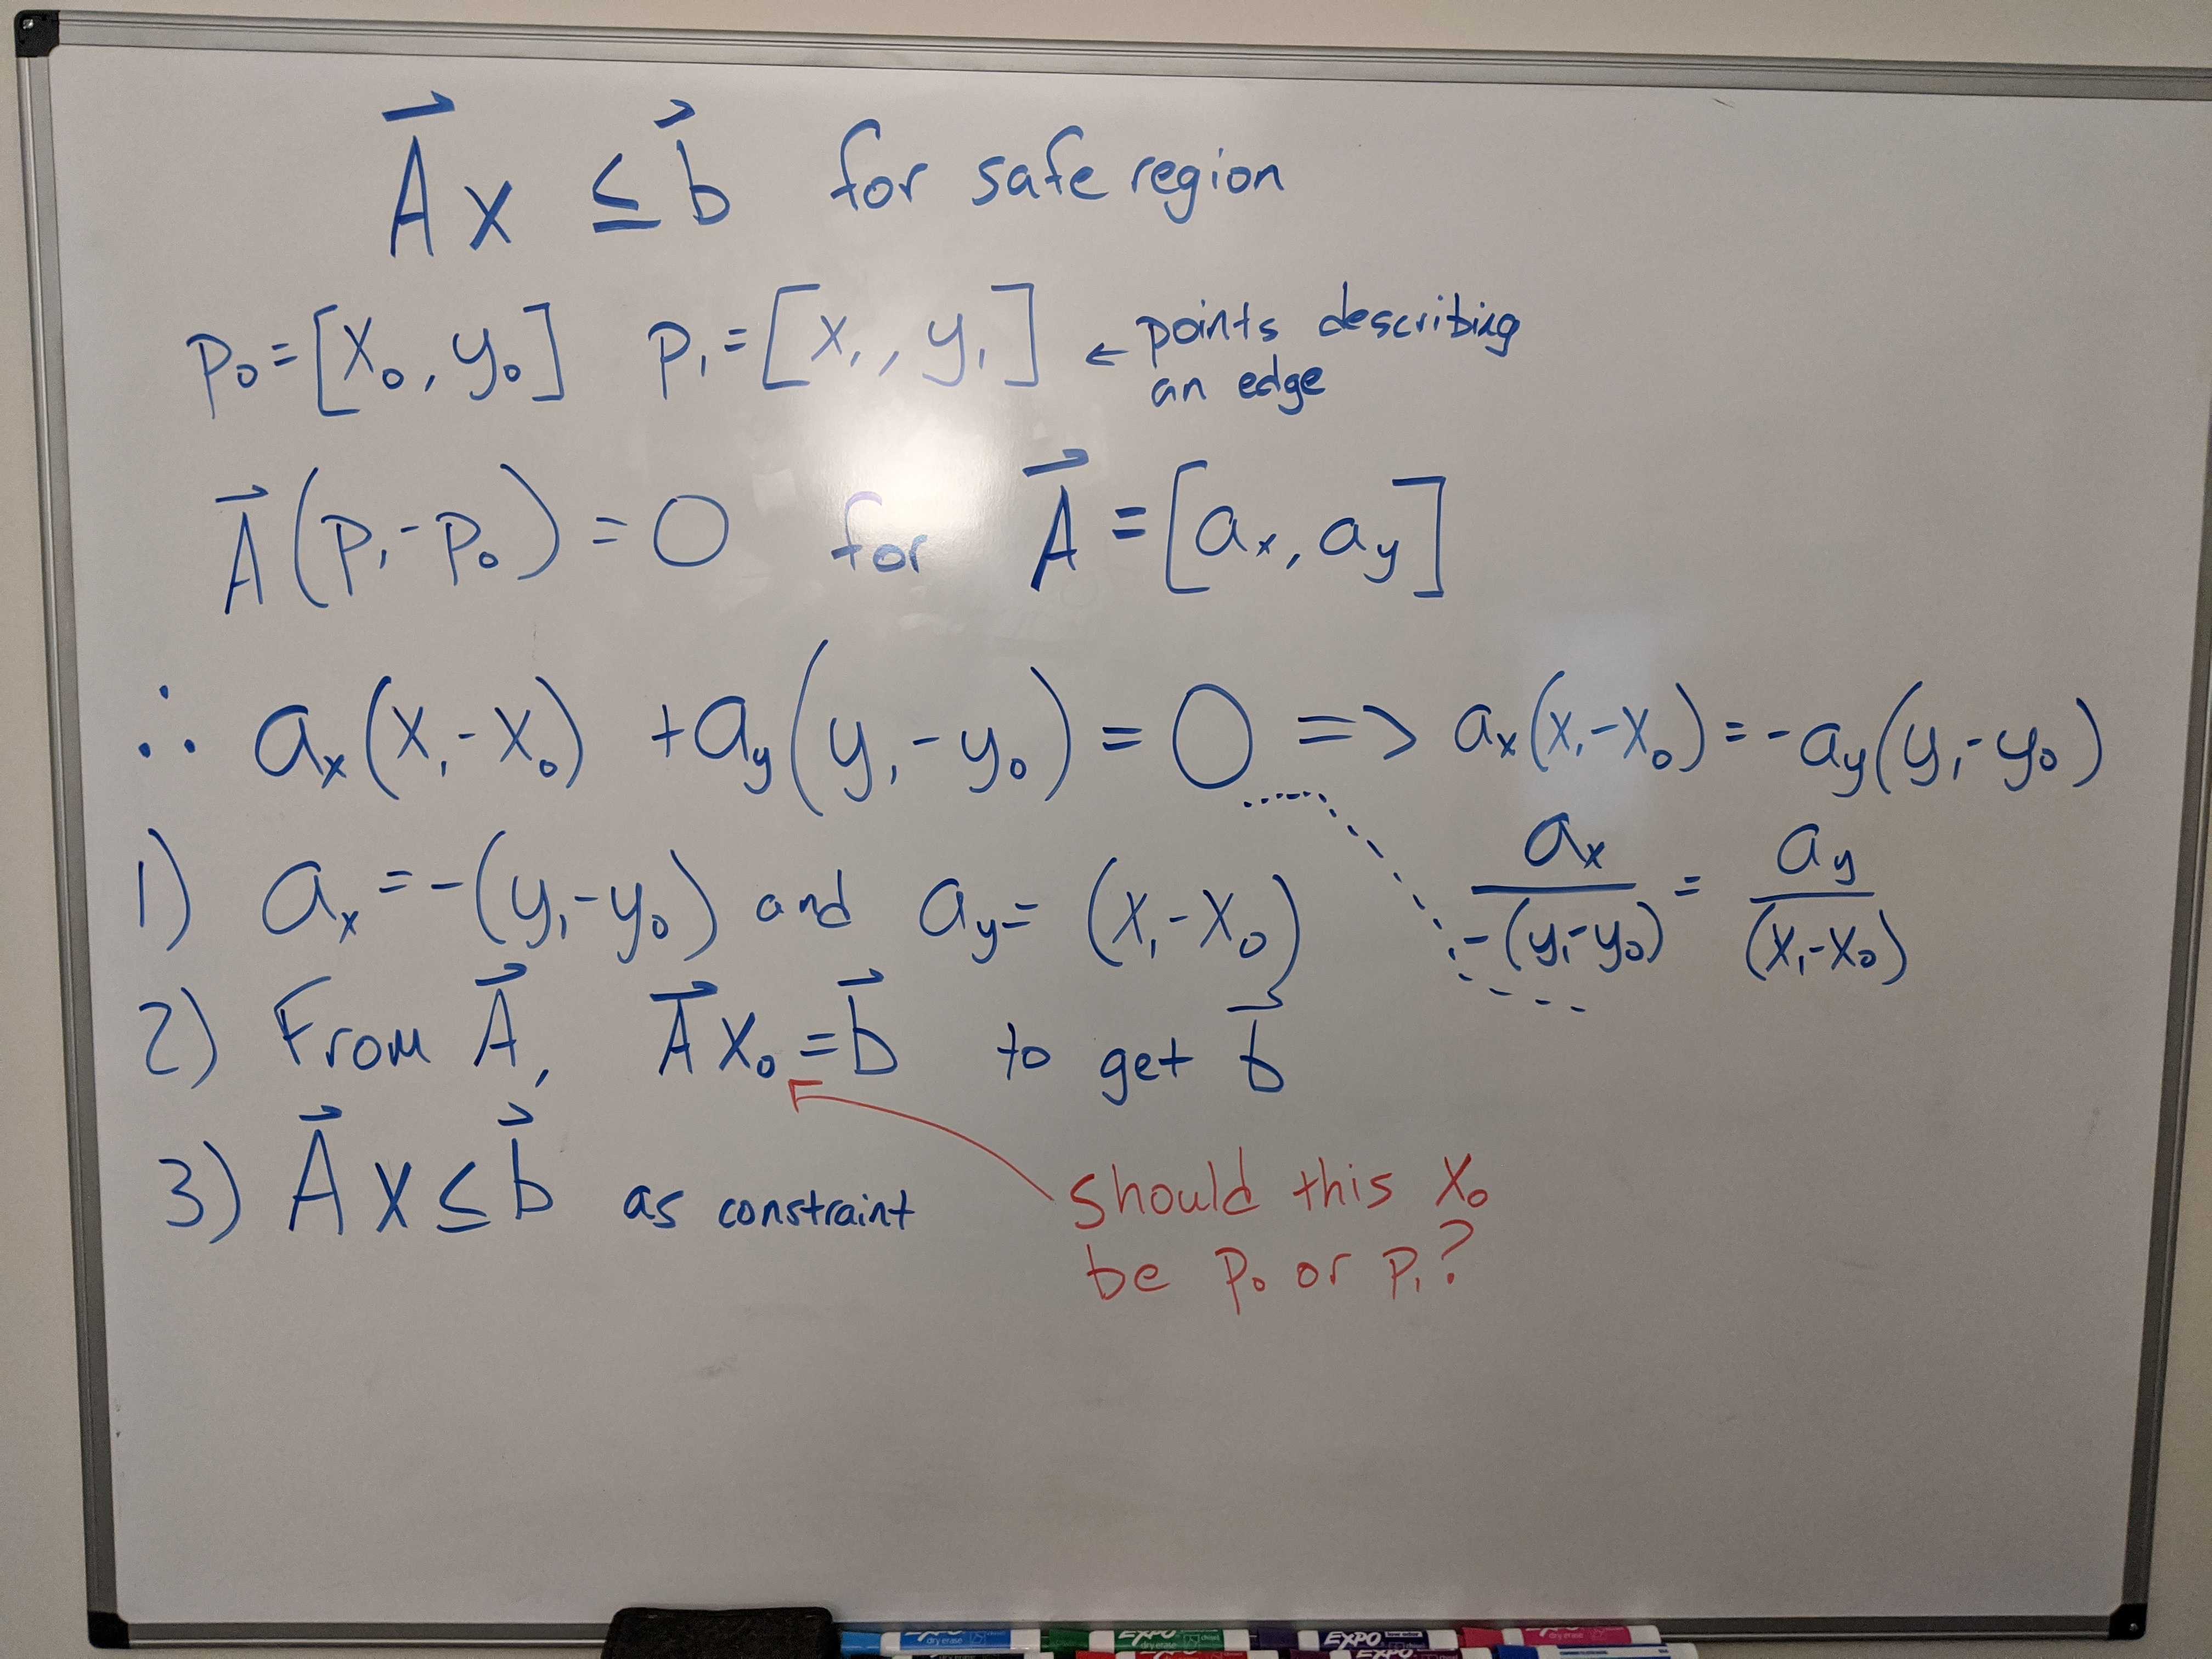 A⃗x ≤ b⃗ for safe region
p₀=[x₀, y₀] p₁=[x₁, y₁] ← points describing
an edge
A⃗(p₁-p₀)=0 for A⃗=[aₓ, a_y]
∴ aₓ(x₁-x₀) +a_y(y₁-y₀)=0 => aₓ(x₁-x₀)=-a_y(y₁-y₀)
aₓ/-(y₁-y₀) = a_y/(x₁-x₀)
1) aₓ=-(y₁-y₀) and a_y=(x₁-x₀)
2) From A⃗, A⃗x₀=b⃗ to get b⃗
3) A⃗x≤b⃗ as constraint
should this x₀
be p₀ or p₁?
EXPO dry erase
EXPO dry erase
EXPO
dry erase
EXPO